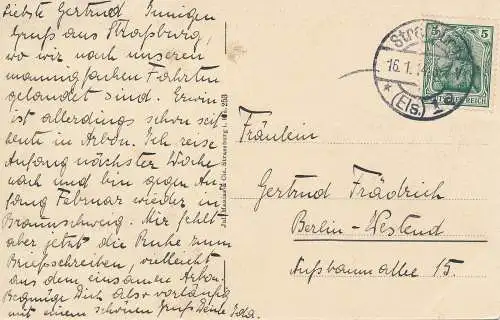 Liebste Gertrud. Innigen
Gruß aus Straßburg,
wo wir nach unseren
mannigfachen Fahrten
gelandet sind. Erwin
ist allerdings schon seit
heute in Arbon. Ich reise
Anfang nächster Woche
nach und bin gegen An-
fang Februar wieder in
Braunschweig. Mir fehlt
aber jetzt die Ruhe zum
Briefschreiben, vielleicht
aus dem einsamen Arbon.
Begnüge Dich also vorläufig
mit einem schönen Gruß Deine Ida.
Strassburg
16.1.14
* (Els.) 1 a
5
DEUTSCHES REICH
Fräulein
Gertrud Frädrich
Berlin-Westend
Nußbaumallee 15.